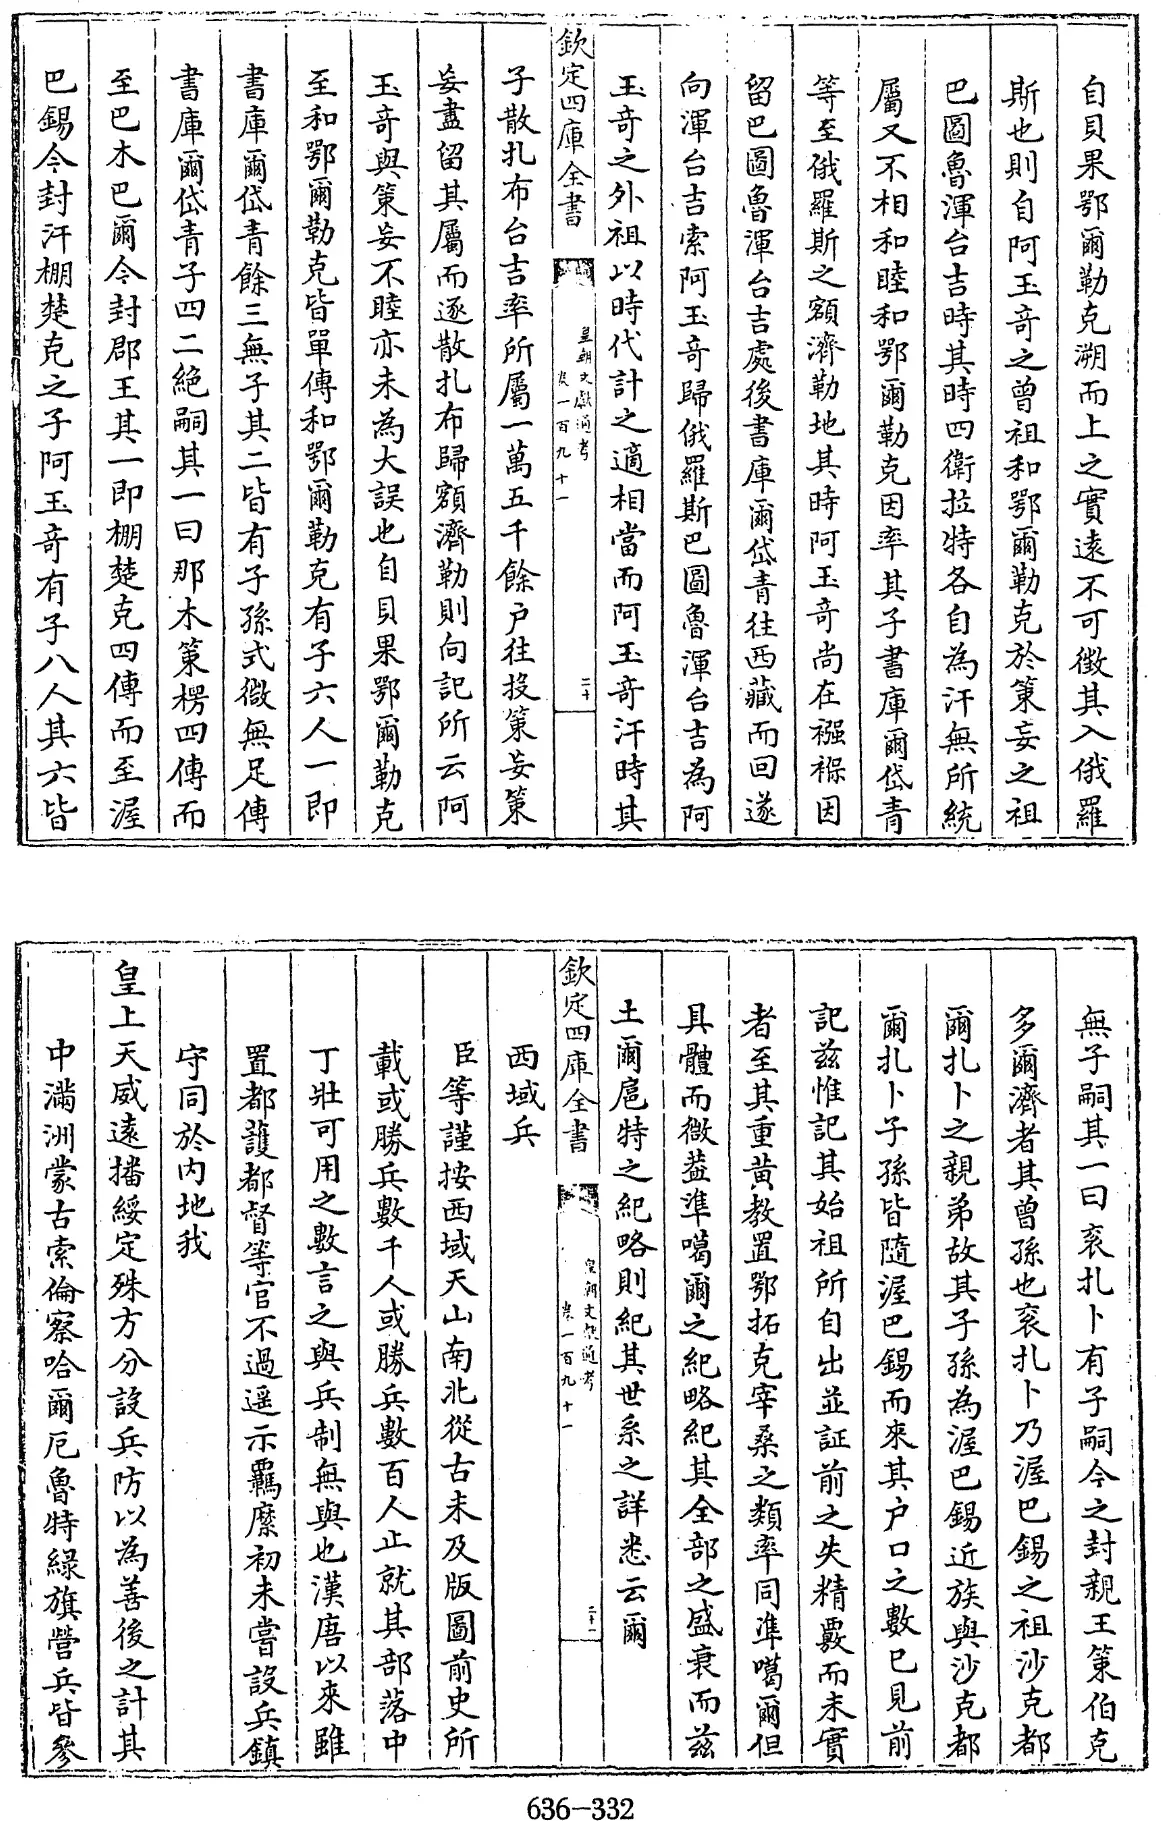 自貝果鄂爾勒克溯而上之實遠不可徵其入俄羅
斯也則自阿玉竒之曾祖和鄂爾勒克於策妄之祖
巴圖魯渾台吉時其時四衛拉特各自為汗無所統
屬又不相和睦和鄂爾勒克因率其子書庫爾岱青
等至俄羅斯之額濟勒地其時阿玉竒尚在襁褓因
留巴圖魯渾台吉處後書庫爾岱青往西藏而回遂
向渾台吉索阿玉竒歸俄羅斯巴圖魯渾台吉為阿
玉竒之外祖以時代計之適相當而阿玉竒汗時其
欽定四庫全書
皇朝文獻通考
卷一百九十一
二十
子散扎布台吉率所屬一萬五千餘户往投策妄策
妄盡留其屬而逐散扎布歸額濟勒則向記所云阿
玉竒與策妄不睦亦未為大誤也自貝果鄂爾勒克
至和鄂爾勒克皆單傳和鄂爾勒克有子六人一即
書庫爾岱青餘三無子其二皆有子孫式微無足傳
書庫爾岱青子四二絶嗣其一曰那木策楞四傳而
至巴木巴爾今封郡王其一即棚楚克四傳而至渥
巴錫今封汗棚楚克之子阿玉竒有子八人其六皆
無子嗣其一曰衮扎卜有子嗣今之封親王策伯克
多爾濟者其曾孫也衮扎卜乃渥巴錫之祖沙克都
爾扎卜之親弟故其子孫為渥巴錫近族與沙克都
爾扎卜子孫皆隨渥巴錫而來其户口之數已見前
記兹惟記其始祖所自出並証前之失精覈而未實
者至其重黄教置鄂拓克宰桑之類率同準噶爾但
具體而微葢準噶爾之紀略紀其全部之盛衰而兹
土爾扈特之紀略則紀其世系之詳悉云爾
欽定四庫全書
皇朝文獻通考
卷一百九十一
二十一
西域兵
臣等謹按西域天山南北從古未及版圖前史所
載或勝兵數千人或勝兵數百人止就其部落中
丁壯可用之數言之與兵制無與也漢唐以來雖
置都護都督等官不過遥示羈縻初未嘗設兵鎮
守同於内地我
皇上天威遠播綏定殊方分設兵防以為善後之計其
中滿洲蒙古索倫察哈爾厄魯特緑旗營兵皆參
636-332